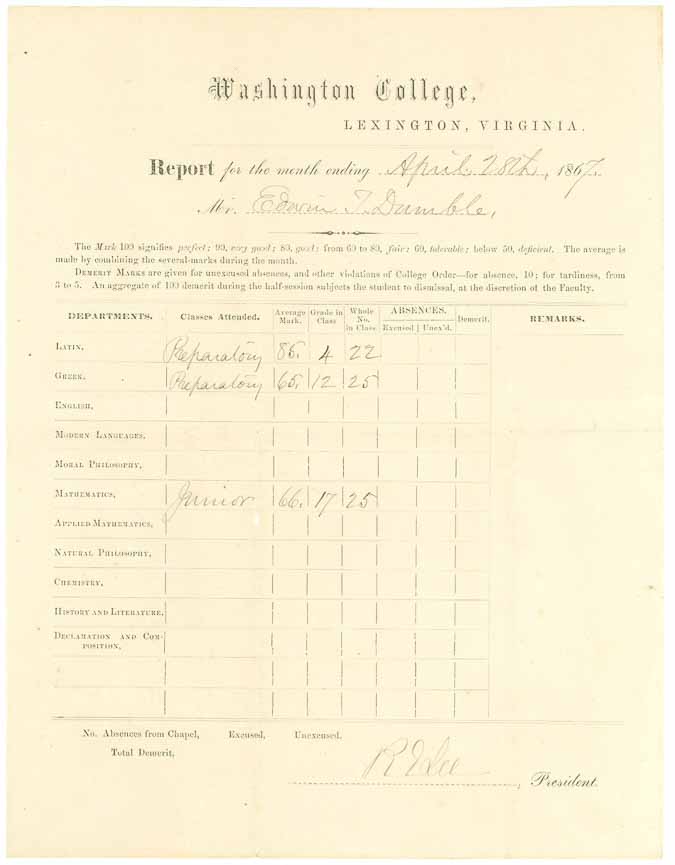 Washington College,
LEXINGTON, VIRGINIA.
Report for the month ending April 28th, 1867.
Mr. Edwin T. Dumble,
The Mark 100 signifies perfect; 90, very good; 80, good; from 60 to 80, fair; 60, tolerable; below 50, deficient. The average is
made by combining the several marks during the month.
DEMERIT MARKS are given for unexcused absences, and other violations of College Order—for absence, 10; for tardiness, from
3 to 5. An aggregate of 100 demerit during the half-session subjects the student to dismissal, at the discretion of the Faculty.
DEPARTMENTS. Classes Attended. Average Mark. Grade in Class Whole No. in Class. ABSENCES. Excused Unex'd. Demerit. REMARKS.
LATIN, Preparatory 86. 4 22
GREEK, Preparatory 65. 12 25
ENGLISH,
MODERN LANGUAGES,
MORAL PHILOSOPHY,
MATHEMATICS, Junior 66. 17 25
APPLIED MATHEMATICS,
NATURAL PHILOSOPHY,
CHEMISTRY,
HISTORY AND LITERATURE,
DECLAMATION AND COM-
POSITION,
No. Absences from Chapel, Excused, Unexcused.
Total Demerit,
R E Lee
, President.